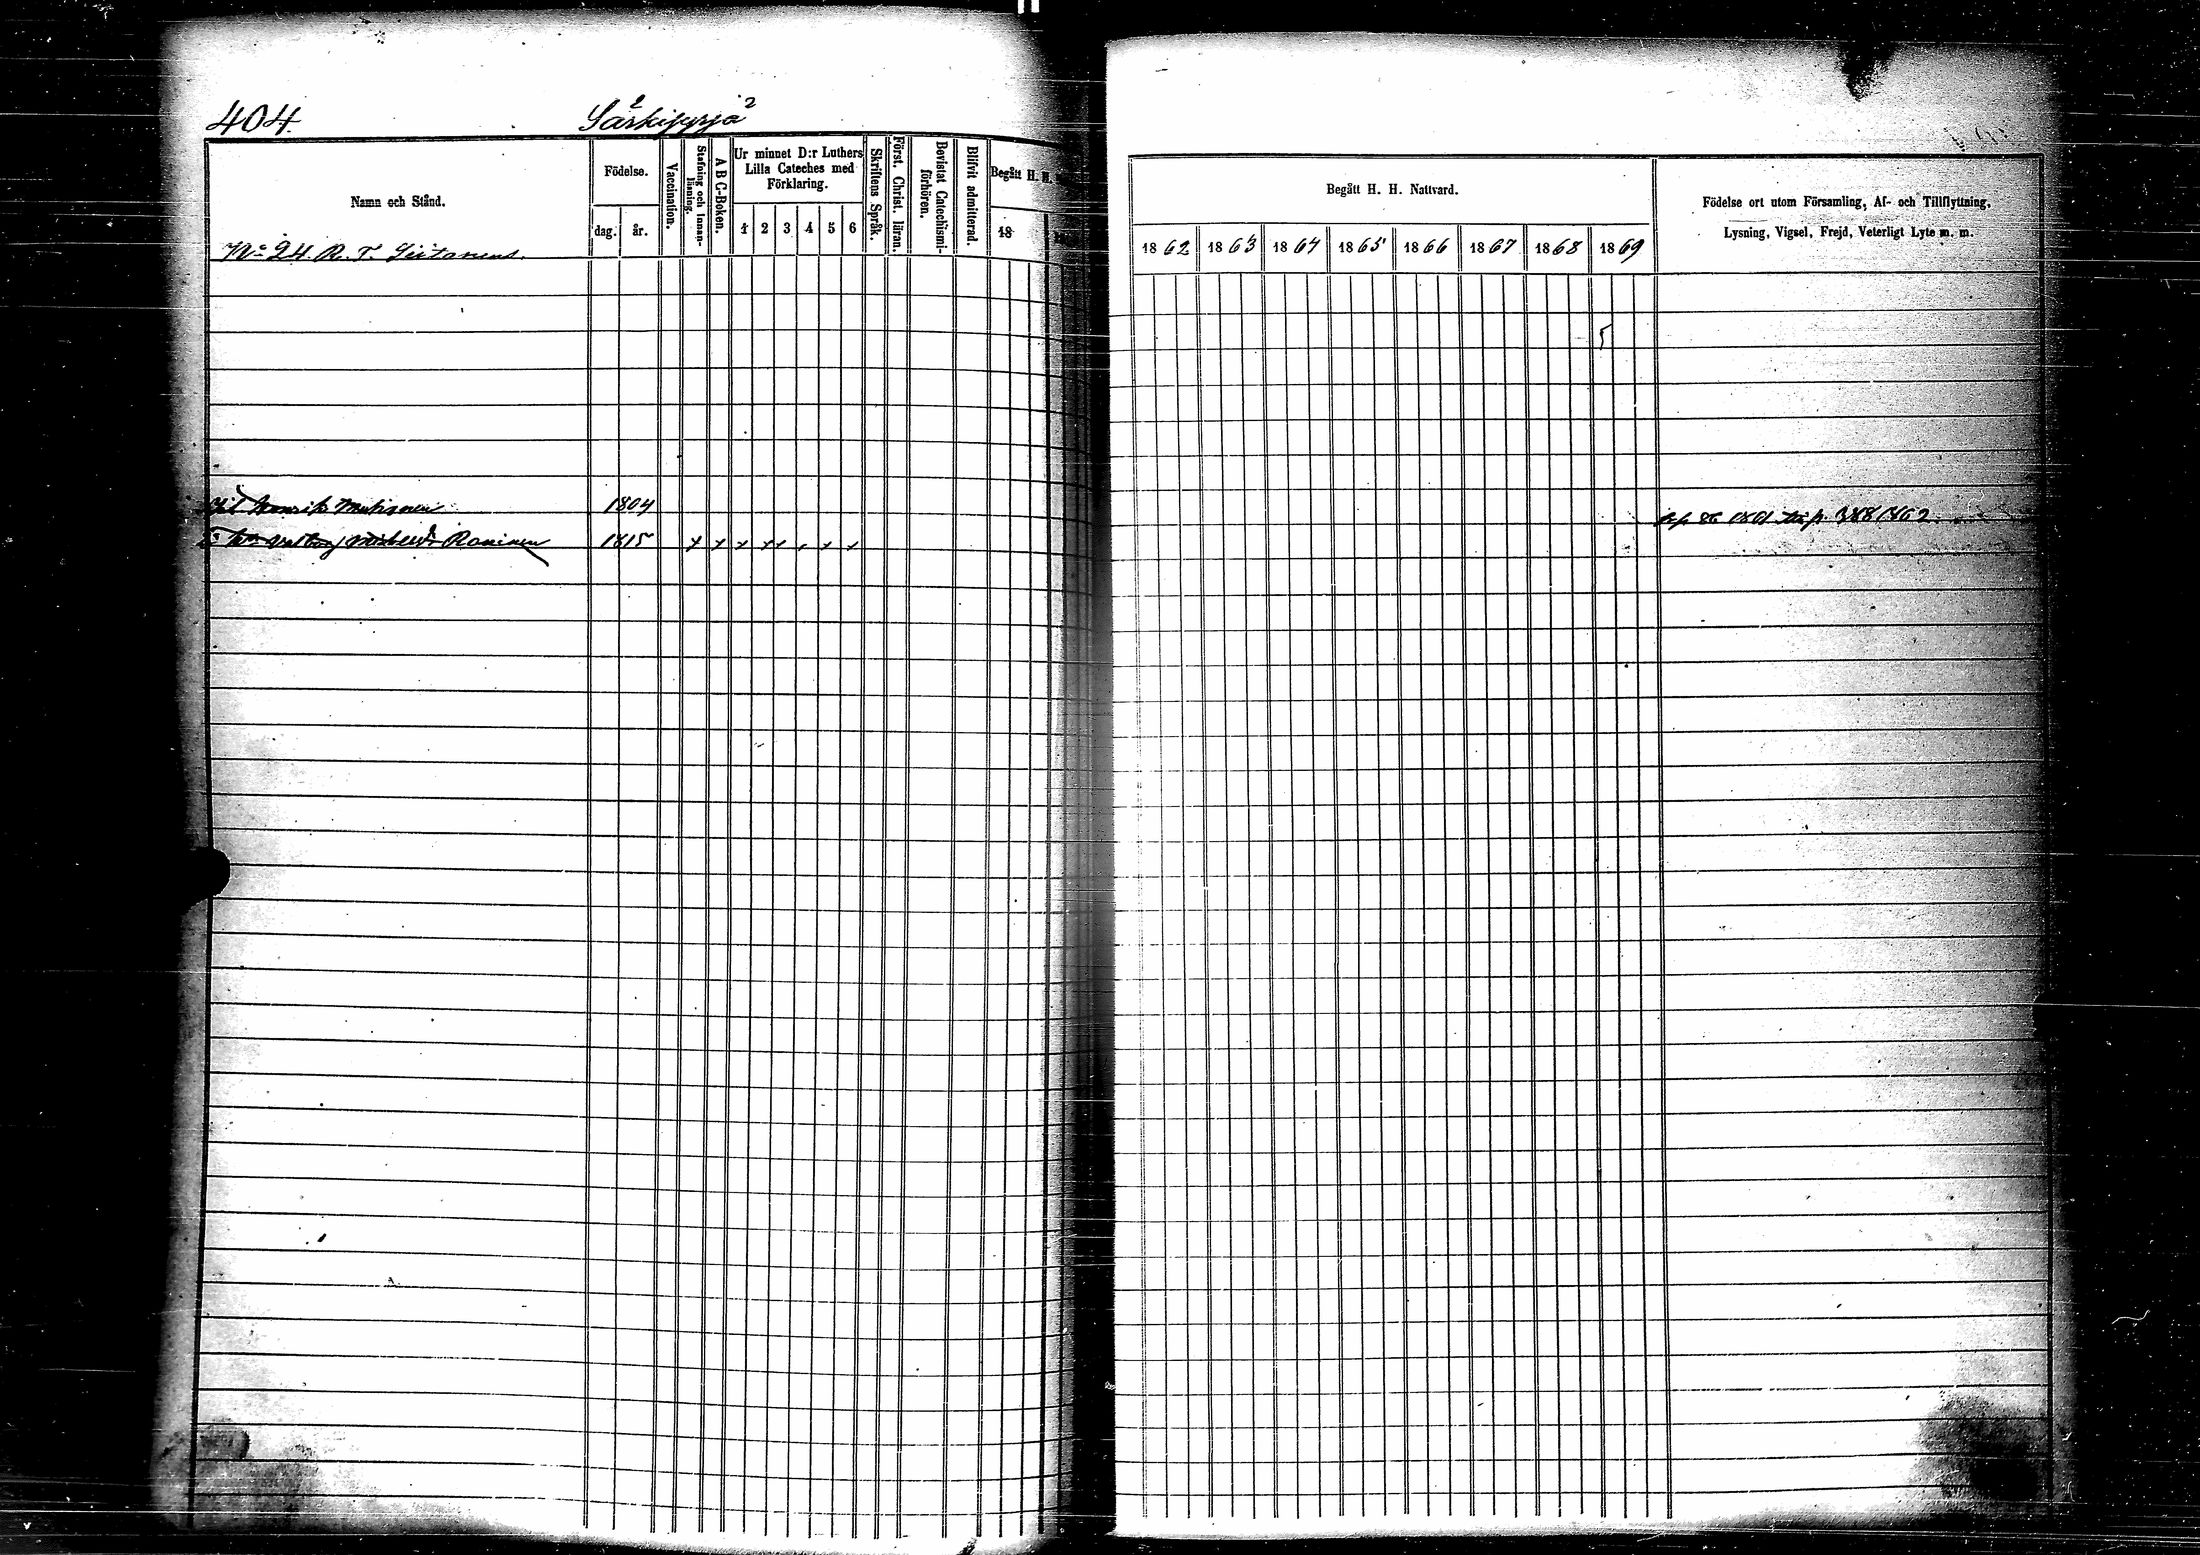 404.
Särkijyrjä
Namn och Stånd.
Födelse.
dag. år.
Vaccination.
Stafning och Innan-läsning.
A B C-Boken.
Ur minnet D:r Luthers
Lilla Cateches med
Förklaring.
1 2 3 4 5 6
Skriftens Språk.
Först. Christ. läran.
Bevistat Catechismi-förhören.
Blifvit admitterad.
Begått H. H.
18
No 24. R. T.
Henrik 1804
Roninen 1815 x x x x x x x
Begått H. H. Nattvard.
1862 1863 1864 1865 1866 1867 1868 1869
Födelse ort utom Församling, Af- och Tillflyttning,
Lysning, Vigsel, Frejd, Veterligt Lyte m. m.
p. 388 1862